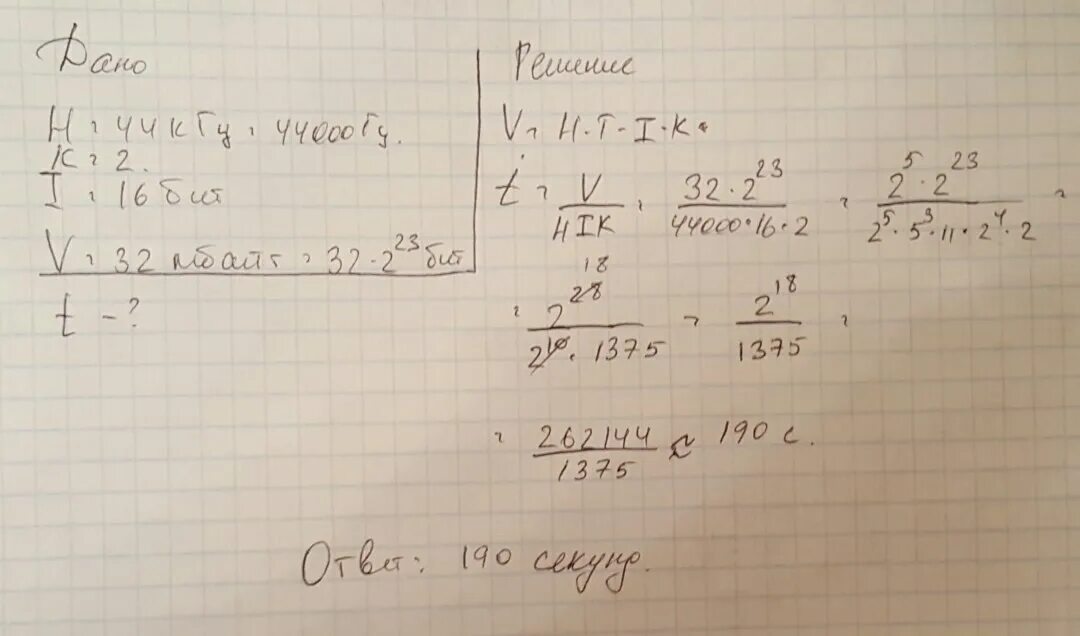 Дано
H = 44 кГц = 44000 Гц.
K = 2.
I = 16 бит
V = 32 мбайт = 32 · 2²³ бит
t - ?
Решение
V = H · T · I · K
t = V / HIK = 32 · 2²³ / 44000 · 16 · 2 = 2⁵ · 2²³ / 2⁵ · 5³ · 11 · 2⁴ · 2 =
18
= 2²⁸ / 2¹⁰ · 1375 = 2¹⁸ / 1375 =
= 262144 / 1375 ≈ 190 с.
Ответ: 190 секунд.